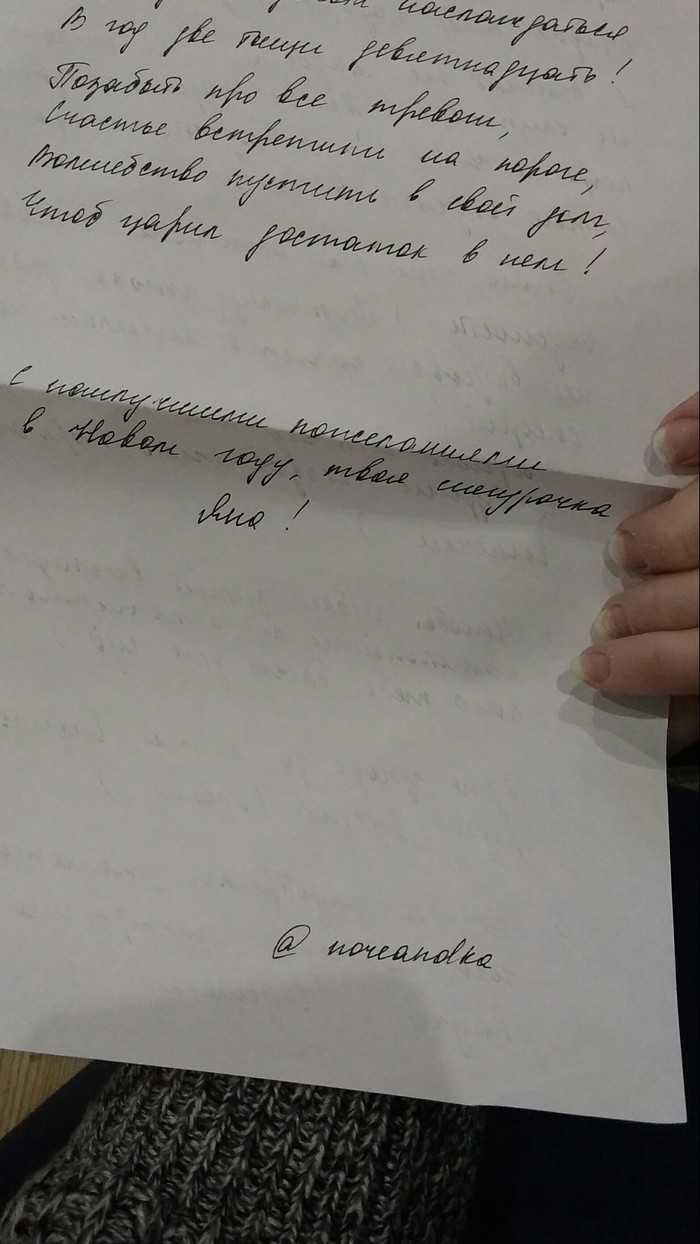 наслаждаться
В год две тыщи девятнадцать!
Позабыть про все тревоги,
Счастье встретить на пороге,
Волшебство пустить в свой дом,
Чтоб царил достаток в нем!
С наилучшими пожеланиями
в Новом году, твоя снегурочка
Яна!
@ noreandka